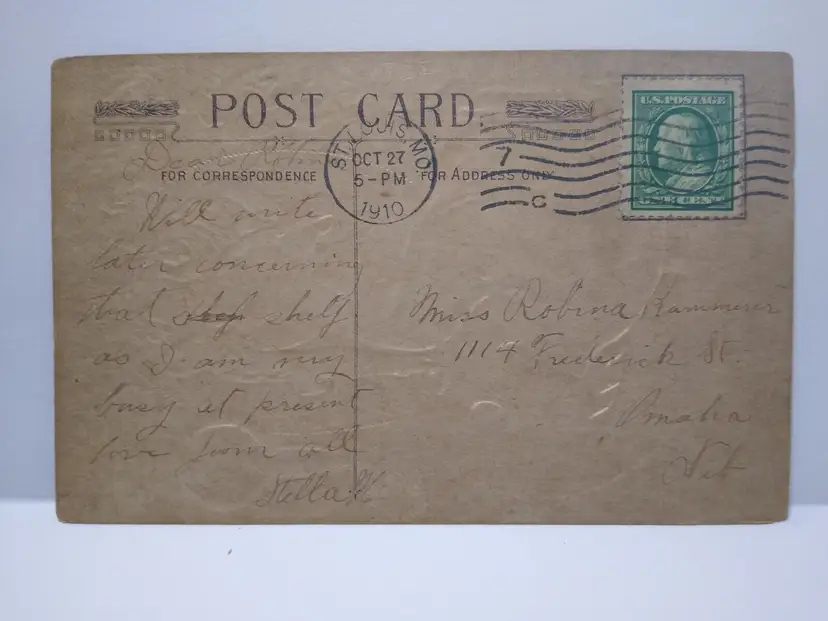 POST CARD.
FOR CORRESPONDENCE
FOR ADDRESS ONLY
ST. LOUIS, MO.
OCT 27
5-PM
1910
7
C
U.S. POSTAGE
Dear Robina
Will write
later concerning
that shelf
as I am very
busy at present
love from all
Stella H
Miss Robina Kammerer
1114 Frederick St.
Omaha
Neb